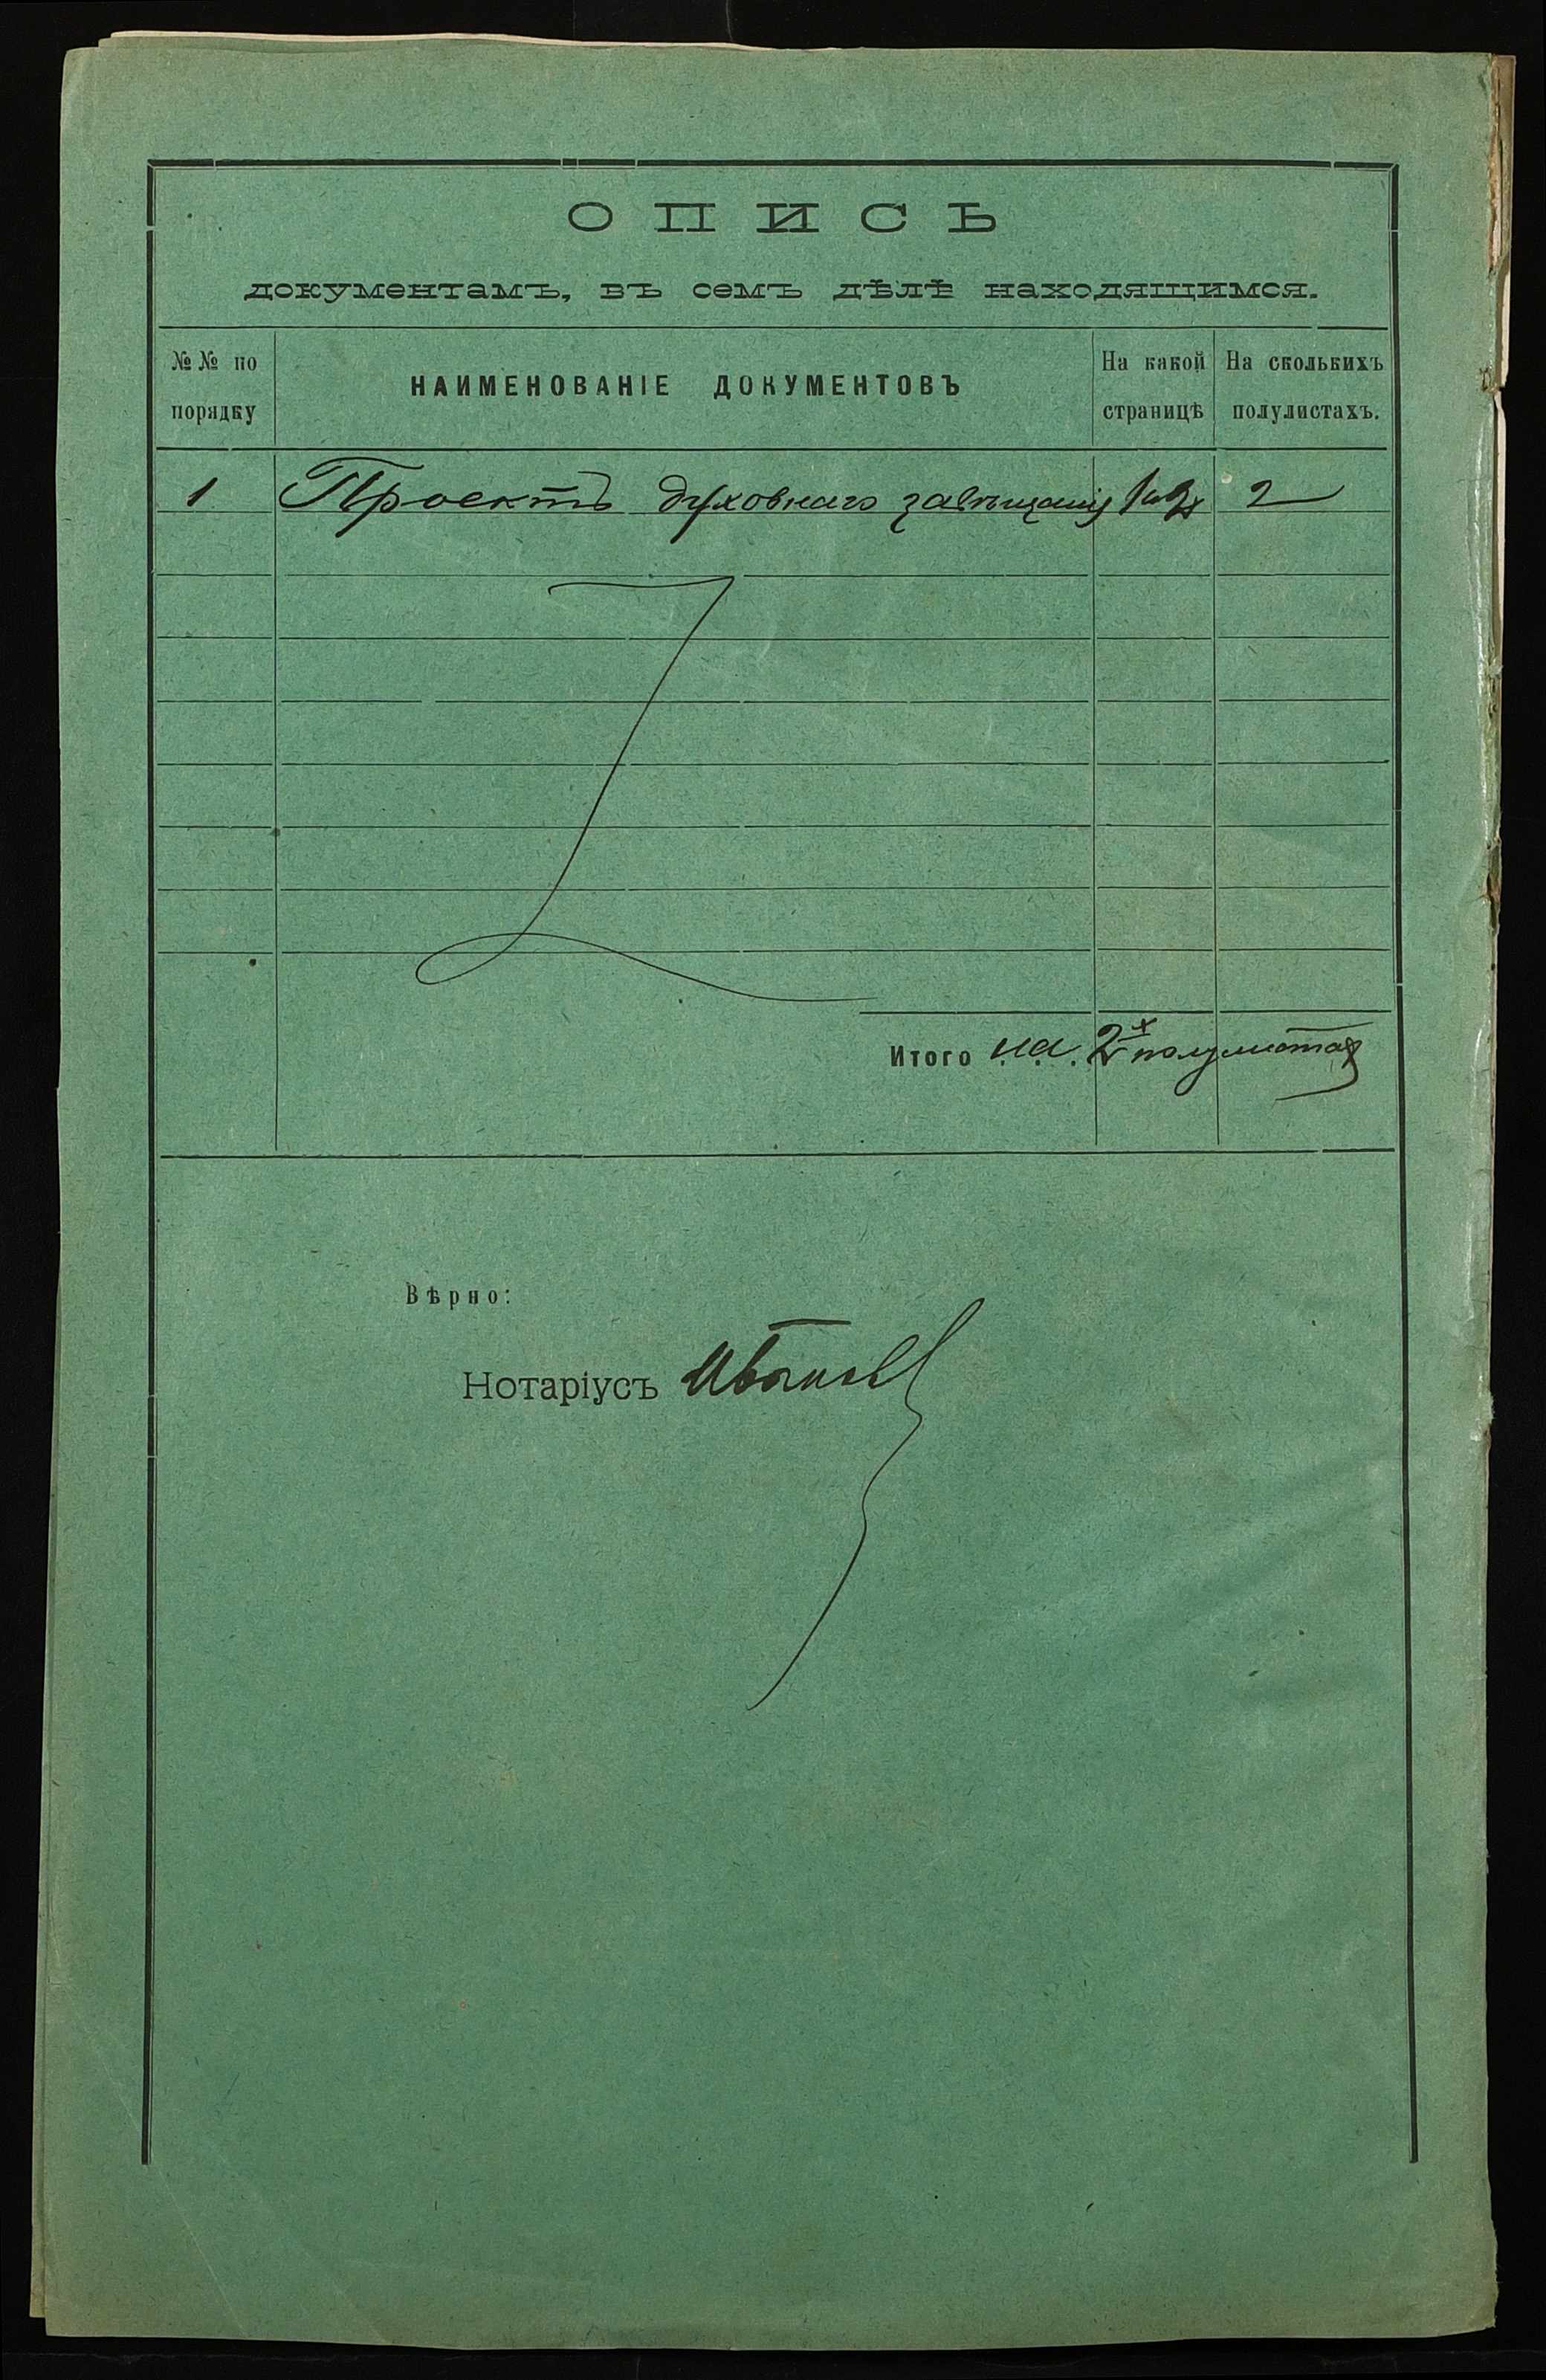 ОПИСЬ
документамъ, въ семъ дѣлѣ находящимся.
№№ по порядку
НАИМЕНОВАНІЕ ДОКУМЕНТОВЪ
На какой страницѣ
На сколькихъ полулистахъ.
1 Проектъ духовнаго завѣщанія 1 и 2 2
Итого на 2х полулистах
Вѣрно:
Нотаріусъ Иванов